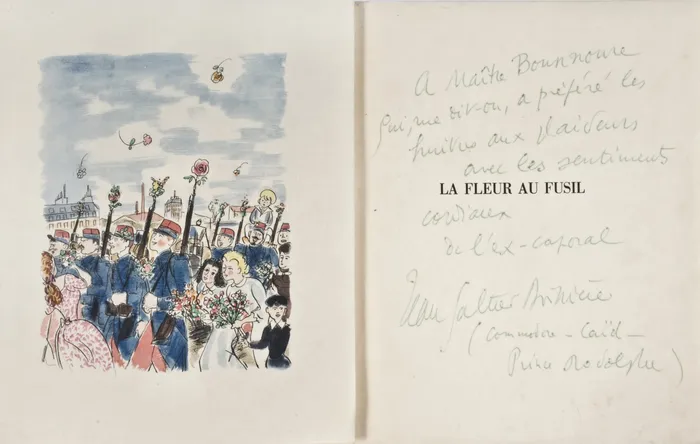 A Maître Bournoure
qui, me dit-on, a préféré les
huîtres aux plaideurs
avec les sentiments
LA FLEUR AU FUSIL
cordiaux
de l'ex-caporal
Jean Galtier Boissière
(commodore - Caïd -
Prince Rodolphe)